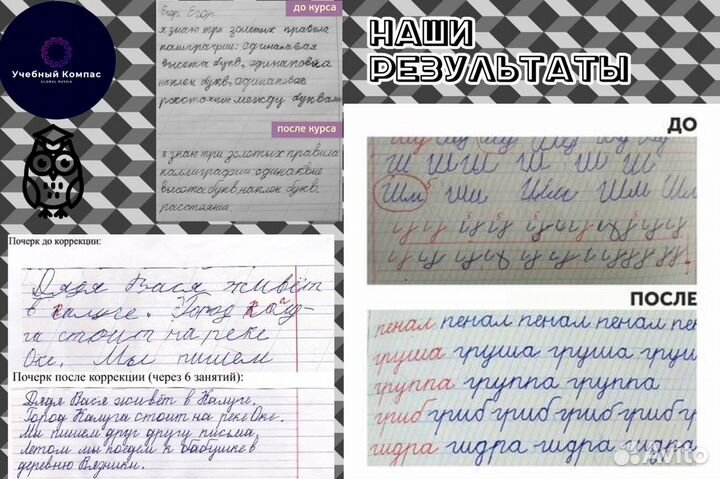 Учебный Компас
GLOBAL RUSSIA
до курса
Егор Егор
я знаю три золотых правила
каллиграфии: одинаковая
высота букв, одинаковый
наклон букв, одинаковое
расстояние между буквами
после курса
я знаю три золотых правила
каллиграфии одинаковые
высота букв, наклон букв.
расстояние.
Почерк до коррекции:
Дядя Вася живёт
в калуге. Город Калу-
га стоит на реке
Оке. Мы пишем
Почерк после коррекции (через 6 занятий):
Дядя Вася живёт в Калуге.
Город Калуга стоит на реке Оке.
Мы пишем друг другу письма.
Летом мы поедем к бабушке в
деревню Вязники.
НАШИ
РЕЗУЛЬТАТЫ
ДО
Ш Ш Ш Ш Ш Ш
Шм Ши Шм Шм Шл
ПОСЛЕ
пенал пенал пенал пенал пен
груша груша груша груш
группа группа группа
гриб гриб гриб гриб гриб гр
гидра гидра гидра гидра
Avito